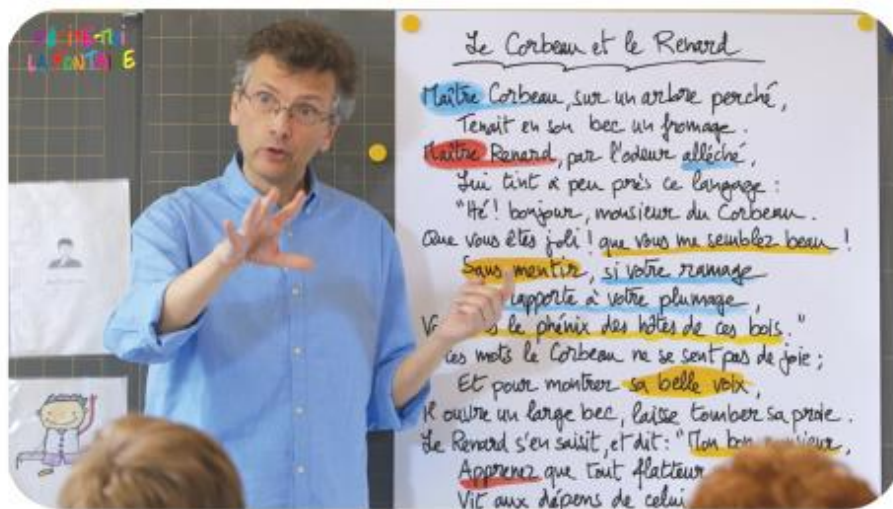 DESSINE-TOI
LA FONTAINE
Le Corbeau et le Renard
Maître Corbeau, sur un arbre perché,
Tenait en son bec un fromage.
Maître Renard, par l'odeur alléché,
Lui tint à peu près ce langage :
"Hé! bonjour, monsieur du Corbeau.
Que vous êtes joli! que vous me semblez beau!
Sans mentir, si votre ramage
rapporte à votre plumage,
le phénix des hôtes de ces bois."
ces mots le Corbeau ne se sent pas de joie;
Et pour montrer sa belle voix,
Il ouvre un large bec, laisse tomber sa proie.
Le Renard s'en saisit, et dit: "Mon bon
Apprenez que tout flatteur
Vit aux dépens de celui